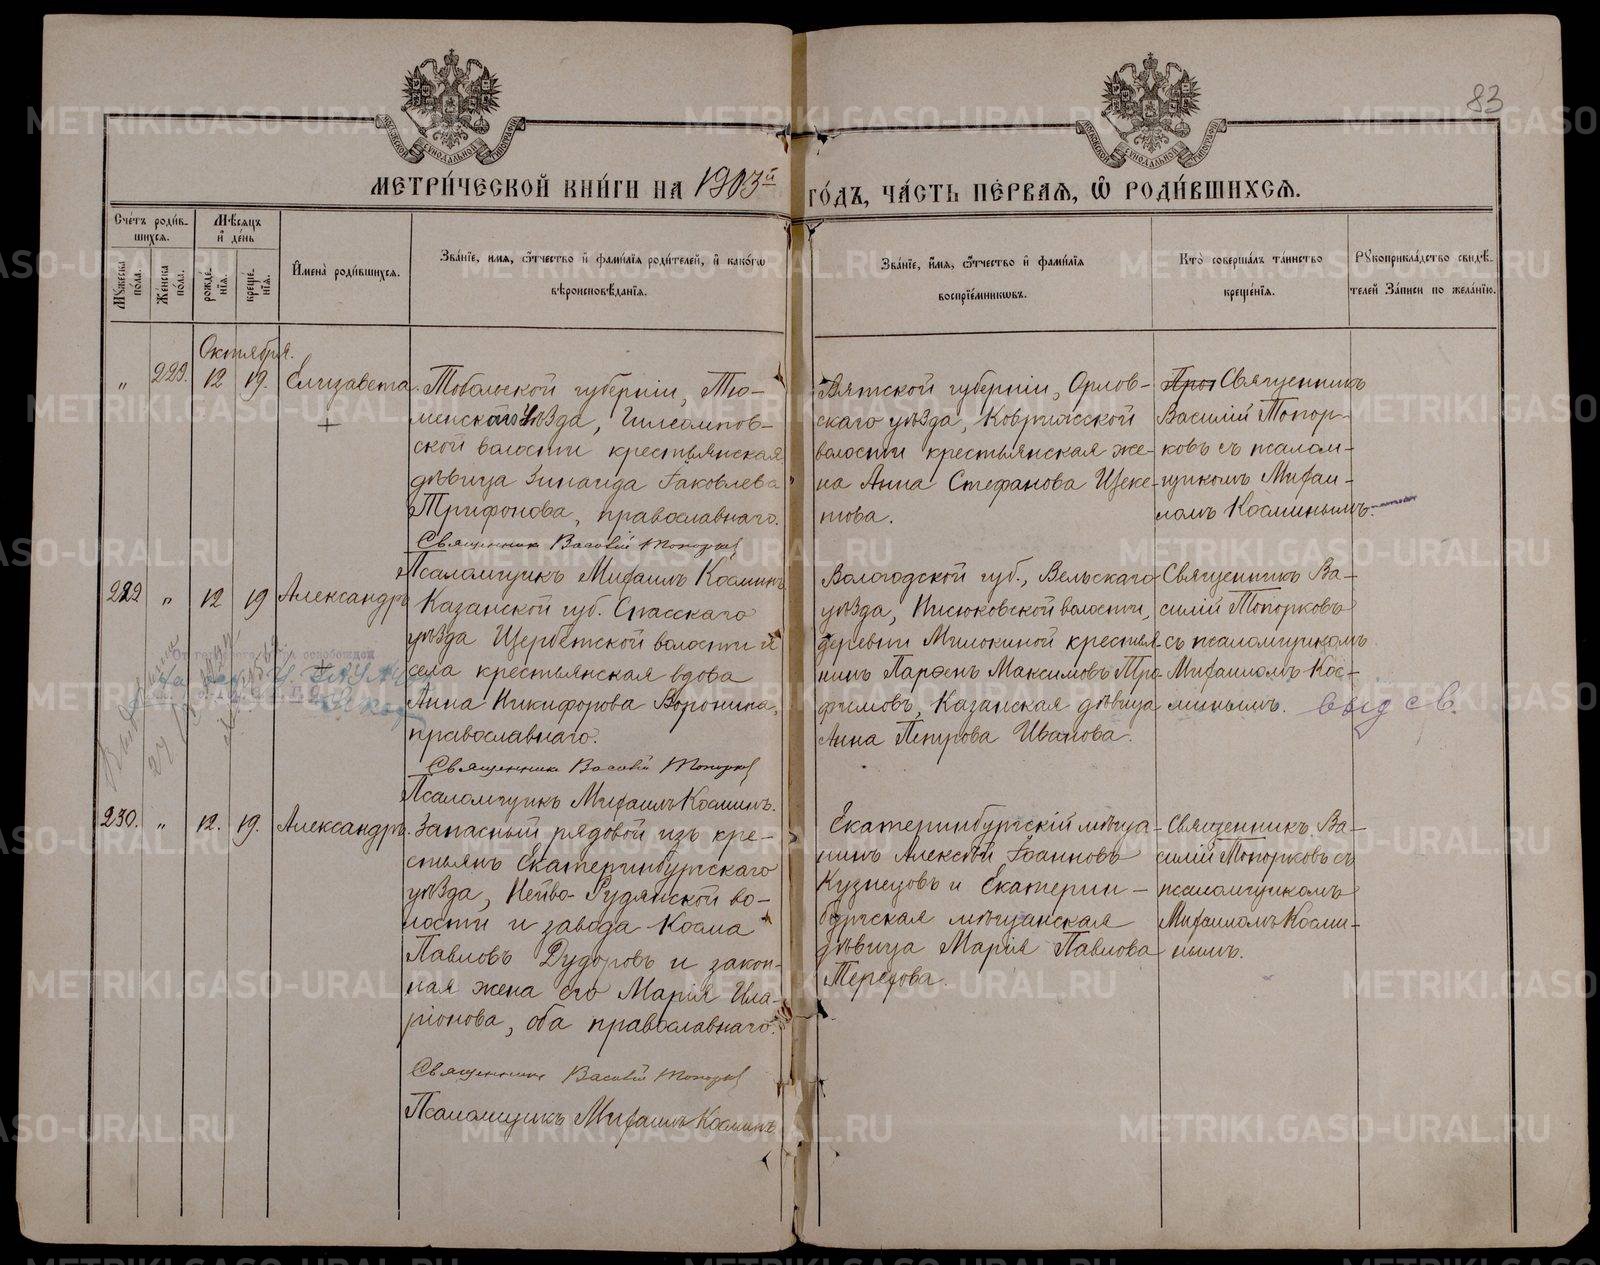 83
МЕТРИ́ЧЕСКОЙ КНИ́ГИ НА 1903й ГО́ДЪ, ЧА́СТЬ ПЕ́РВАѦ, Ѡ҆ РОДИ́ВШИХСѦ.
Сче́тъ роди́в-
шихся.
Мꙋ́жеска по́ла.
Же́нска по́ла.
Мѣ́сяцъ
и҆ де́нь
рожде́-
нїя.
креще́-
нїя.
И҆мена̀ роди́вшихся.
Зва́нїе, и҆мя, ѻ҆́тчество и҆ фами́лїя роди́телей, и҆ како́гѡ
вѣроисповѣ́данїя.
Зва́нїе, и҆́мя, ѻ҆́тчество и҆ фами́лїя
воспрїе́мникѡвъ.
Кто̀ соверша́лъ та́инство
креще́нїя.
Рꙋкоприкла́дство свидѣ́-
телей За́писи по жела́нїю.
Октября.
„ 229. 12 19. Елизавета.
Тобольской губерніи, Тю-
менскаго уѣзда,
ской волости крестьянская
дѣвица Зинаида Іаковлева
Трифонова, православнаго.
Священникъ Василій Топорков
Псаломщикъ Михаилъ Косминъ
Вятской губерніи, Орлов-
скаго уѣзда,
волости крестьянская же-
на Анна Стефанова Щеке-
това.
Священникъ
Василій Топор-
ковъ съ псалом-
щикомъ Михаи-
ломъ Косминымъ.
229 „ 12 19 Александръ
Казанской губ. Спасскаго
уѣзда Щербетской волости и
села крестьянская вдова
Анна Никифорова Воронина,
православнаго.
Священникъ Василій Топорков
Псаломщикъ Михаилъ Косминъ.
Вологодской губ., Вельскаго
уѣзда, волости,
деревни крестья-
нинъ Максимовъ Тро-
фимовъ, Казанская дѣвица
Анна Петрова Иванова.
Священникъ Ва-
силій Топорковъ
съ псаломщикомъ
Михаиломъ Кос-
минымъ.
выд св.
230. „ 12. 19. Александръ.
Запасный рядовой изъ кре-
стьянъ Екатеринбургскаго
уѣзда, Нейво-Рудянской во-
лости и завода Косма
Павловъ Дудоровъ и закон-
ная жена его Марія Ила-
ріонова, оба православнаго.
Священникъ Василій Топорков
Псаломщикъ Михаилъ Косминъ
Екатеринбургскій мѣща-
нинъ Алексѣй Іоанновъ
Кузнецовъ и Екатерин-
бургская мѣщанская
дѣвица Марія Павлова
Священникъ Ва-
силій Топорковъ съ
псаломщикомъ
Михаиломъ Косми-
нымъ.
METRIKI.GASO-URAL.RU